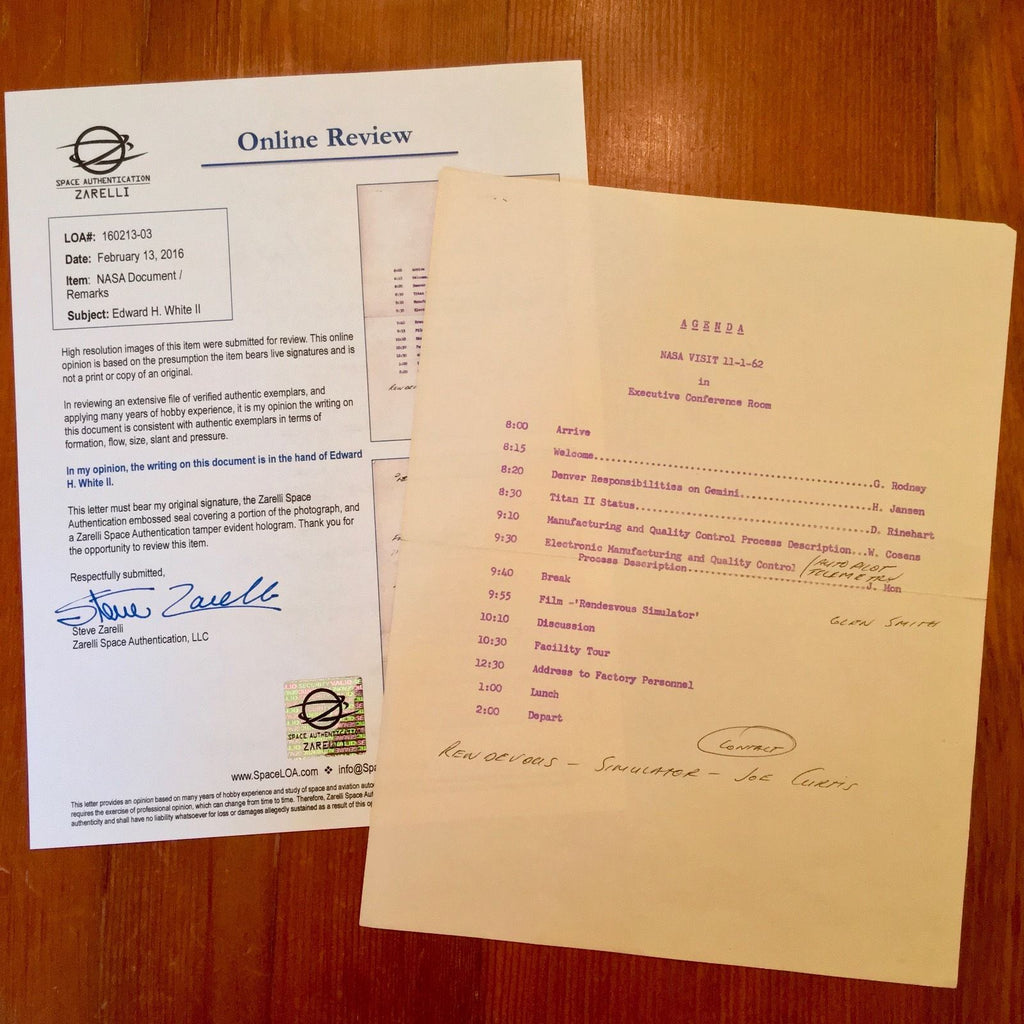 SPACE AUTHENTICATION
ZARELLI
Online Review
LOA#: 160213-03
Date: February 13, 2016
Item: NASA Document /
Remarks
Subject: Edward H. White II
High resolution images of this item were submitted for review. This online
opinion is based on the presumption the item bears live signatures and is
not a print or copy of an original.
In reviewing an extensive file of verified authentic exemplars, and
applying many years of hobby experience, it is my opinion the writing on
this document is consistent with authentic exemplars in terms of
formation, flow, size, slant and pressure.
In my opinion, the writing on this document is in the hand of Edward
H. White II.
This letter must bear my original signature, the Zarelli Space
Authentication embossed seal covering a portion of the photograph, and
a Zarelli Space Authentication tamper evident hologram. Thank you for
the opportunity to review this item.
Respectfully submitted,
Steve Zarelli
Steve Zarelli
Zarelli Space Authentication, LLC
SPACE AUTHENTICATION
ZARELLI
www.SpaceLOA.com ❖ info@Spa
This letter provides an opinion based on many years of hobby experience and study of space and aviation auto
requires the exercise of professional opinion, which can change from time to time. Therefore, Zarelli Space Aut
authenticity and shall have no liability whatsoever for loss or damages allegedly sustained as a result of this op
AGENDA
NASA VISIT 11-1-62
in
Executive Conference Room
8:00 Arrive
8:15 Welcome...G. Rodney
8:20 Denver Responsibilities on Gemini...H. Jansen
8:30 Titan II Status...D. Rinehart
9:10 Manufacturing and Quality Control Process Description...W. Cosens
9:30 Electronic Manufacturing and Quality Control / AUTOPILOT
Process Description...J. Mon TELEMETRY
GLEN SMITH
9:40 Break
9:55 Film -'Rendesvous Simulator'
10:10 Discussion
10:30 Facility Tour
12:30 Address to Factory Personnel
1:00 Lunch
2:00 Depart
CONTACT
RENDEVOUS - SIMULATOR - JOE CURTIS